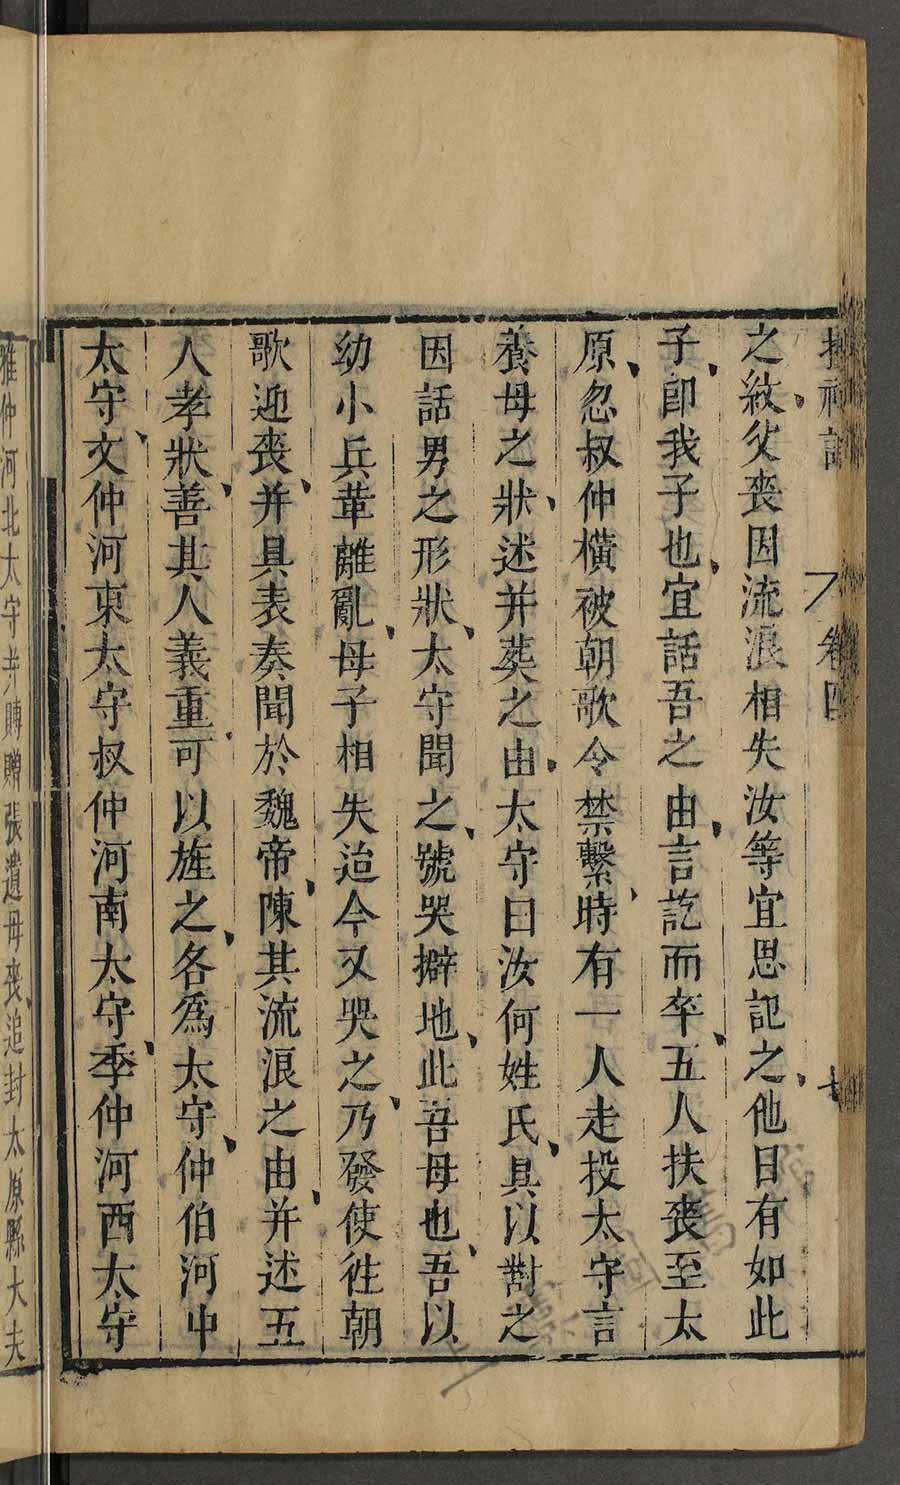 搜神記 卷四 七
之紋父喪因流浪相失汝等宜思記之他日有如此
子卽我子也宜話吾之由言訖而卒五人扶喪至太
原忽叔仲橫被朝歌令禁繫時有一人走投太守言
養母之狀述并葬之由太守曰汝何姓氏具以對之
因話男之形狀太守聞之號哭擗地此吾母也吾以
幼小兵革離亂母子相失迨今又哭之乃發使往朝
歌迎喪并具表奏聞於魏帝陳其流浪之由并述五
人孝狀善其人義重可以旌之各爲太守仲伯河中
太守文仲河東太守叔仲河南太守季仲河西太守
雅仲河北太守并賻贈張遺母喪追封太原縣大夫